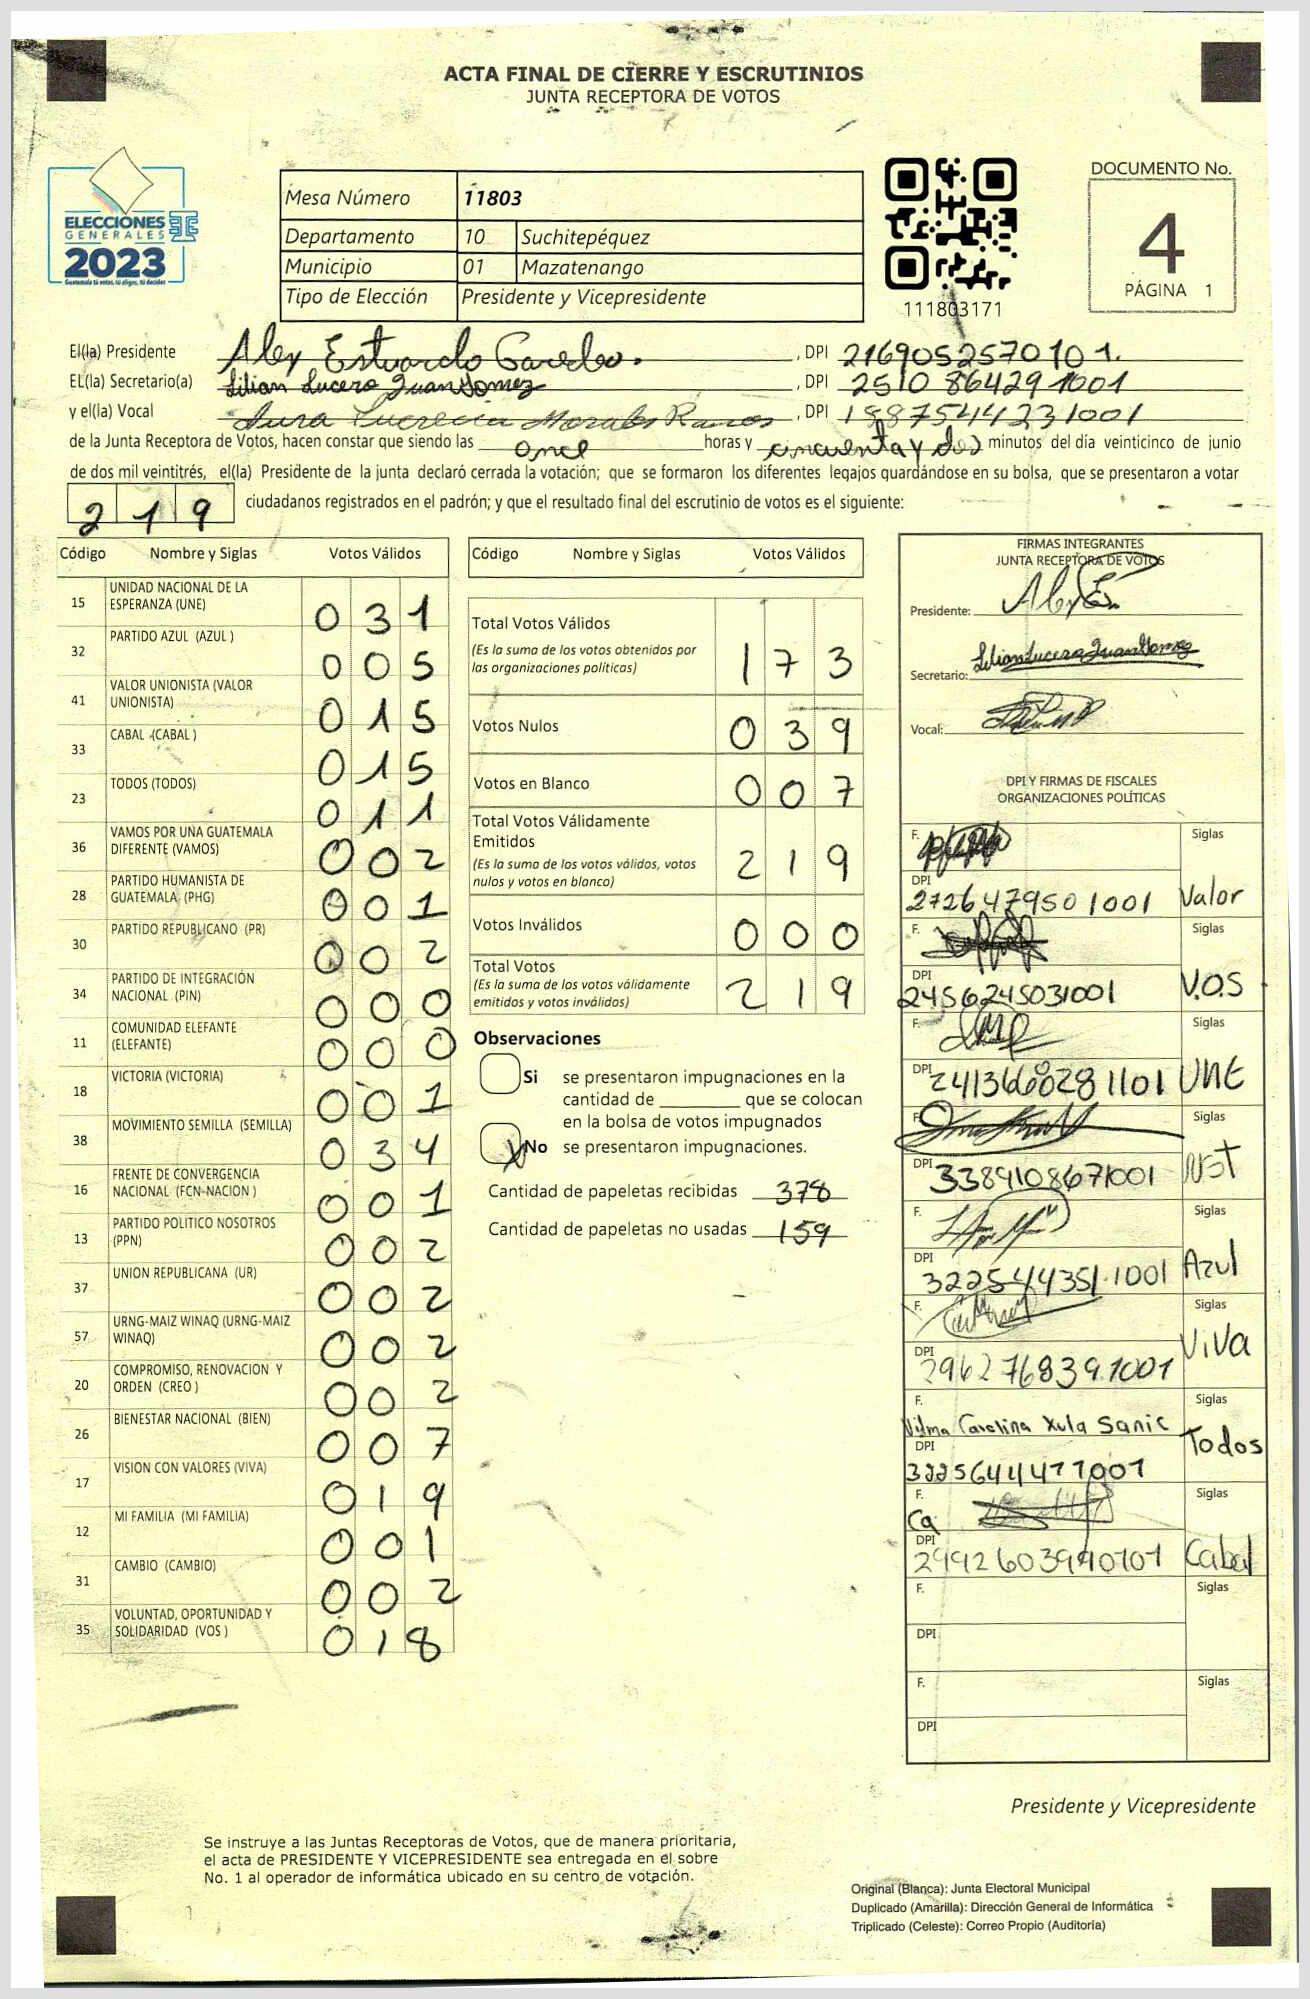 ACTA FINAL DE CIERRE Y ESCRUTINIOS
JUNTA RECEPTORA DE VOTOS
ELECCIONES
GENERALES
2023
Guatemala tú votas, tú eliges, tú decides
Mesa Número 11803
Departamento 10 Suchitepéquez
Municipio 01 Mazatenango
Tipo de Elección Presidente y Vicepresidente
111803171
DOCUMENTO No.
4
PÁGINA 1
El(la) Presidente Alex Estuardo , DPI 2169052570101.
EL(la) Secretario(a) Lilian Lucero Juan Gomez , DPI 2510 86429 1001
y el(la) Vocal Aura Lucrecia Morales Ramos , DPI 1887544231001
de la Junta Receptora de Votos, hacen constar que siendo las once horas y cincuenta y dos minutos del día veinticinco de junio
de dos mil veintitrés, el(la) Presidente de la junta declaró cerrada la votación; que se formaron los diferentes legajos guardándose en su bolsa, que se presentaron a votar
219 ciudadanos registrados en el padrón; y que el resultado final del escrutinio de votos es el siguiente:
Código Nombre y Siglas Votos Válidos
15 UNIDAD NACIONAL DE LA ESPERANZA (UNE) 031
32 PARTIDO AZUL (AZUL ) 005
41 VALOR UNIONISTA (VALOR UNIONISTA) 015
33 CABAL (CABAL ) 015
23 TODOS (TODOS) 011
36 VAMOS POR UNA GUATEMALA DIFERENTE (VAMOS) 002
28 PARTIDO HUMANISTA DE GUATEMALA (PHG) 001
30 PARTIDO REPUBLICANO (PR) 002
34 PARTIDO DE INTEGRACIÓN NACIONAL (PIN) 000
11 COMUNIDAD ELEFANTE (ELEFANTE) 000
18 VICTORIA (VICTORIA) 001
38 MOVIMIENTO SEMILLA (SEMILLA) 034
16 FRENTE DE CONVERGENCIA NACIONAL (FCN-NACION ) 001
13 PARTIDO POLITICO NOSOTROS (PPN) 002
37 UNION REPUBLICANA (UR) 002
57 URNG-MAIZ WINAQ (URNG-MAIZ WINAQ) 002
20 COMPROMISO, RENOVACION Y ORDEN (CREO ) 002
26 BIENESTAR NACIONAL (BIEN) 007
17 VISION CON VALORES (VIVA) 019
12 MI FAMILIA (MI FAMILIA) 001
31 CAMBIO (CAMBIO) 002
35 VOLUNTAD, OPORTUNIDAD Y SOLIDARIDAD (VOS ) 018
Código Nombre y Siglas Votos Válidos
Total Votos Válidos 173
(Es la suma de los votos obtenidos por
las organizaciones políticas)
Votos Nulos 039
Votos en Blanco 007
Total Votos Válidamente
Emitidos 219
(Es la suma de los votos válidos, votos
nulos y votos en blanco)
Votos Inválidos 000
Total Votos 219
(Es la suma de los votos válidamente
emitidos y votos inválidos)
Observaciones
Si se presentaron impugnaciones en la
cantidad de ________ que se colocan
en la bolsa de votos impugnados
X No se presentaron impugnaciones.
Cantidad de papeletas recibidas 378
Cantidad de papeletas no usadas 159
FIRMAS INTEGRANTES
JUNTA RECEPTORA DE VOTOS
Presidente:
Secretario: Lilian Lucero Juan Gomez
Vocal:
DPI Y FIRMAS DE FISCALES
ORGANIZACIONES POLÍTICAS
F. Siglas
DPI 2726479501001 Valor
F. Siglas
DPI 2456245031001 V.O.S
F. Siglas
DPI UNE
F. Siglas
DPI 3389108671001
F. Siglas
DPI 322544351.1001 Azul
F. Siglas
DPI 296276839.1001 ViVa
F. Vilma Carolina Xula Sanic Siglas
DPI Todos
F. Siglas
DPI Cabal
F. Siglas
DPI
F. Siglas
DPI
Presidente y Vicepresidente
Se instruye a las Juntas Receptoras de Votos, que de manera prioritaria,
el acta de PRESIDENTE Y VICEPRESIDENTE sea entregada en el sobre
No. 1 al operador de informática ubicado en su centro de votación.
Original (Blanca): Junta Electoral Municipal
Duplicado (Amarilla): Dirección General de Informática
Triplicado (Celeste): Correo Propio (Auditoría)